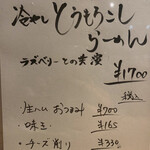 冷やし とうもろこし
らーめん
ラズベリーとの共演
¥1700
税込
・生ハム おつまみ ¥700
・味玉 ¥165
・チーズ削り ¥330